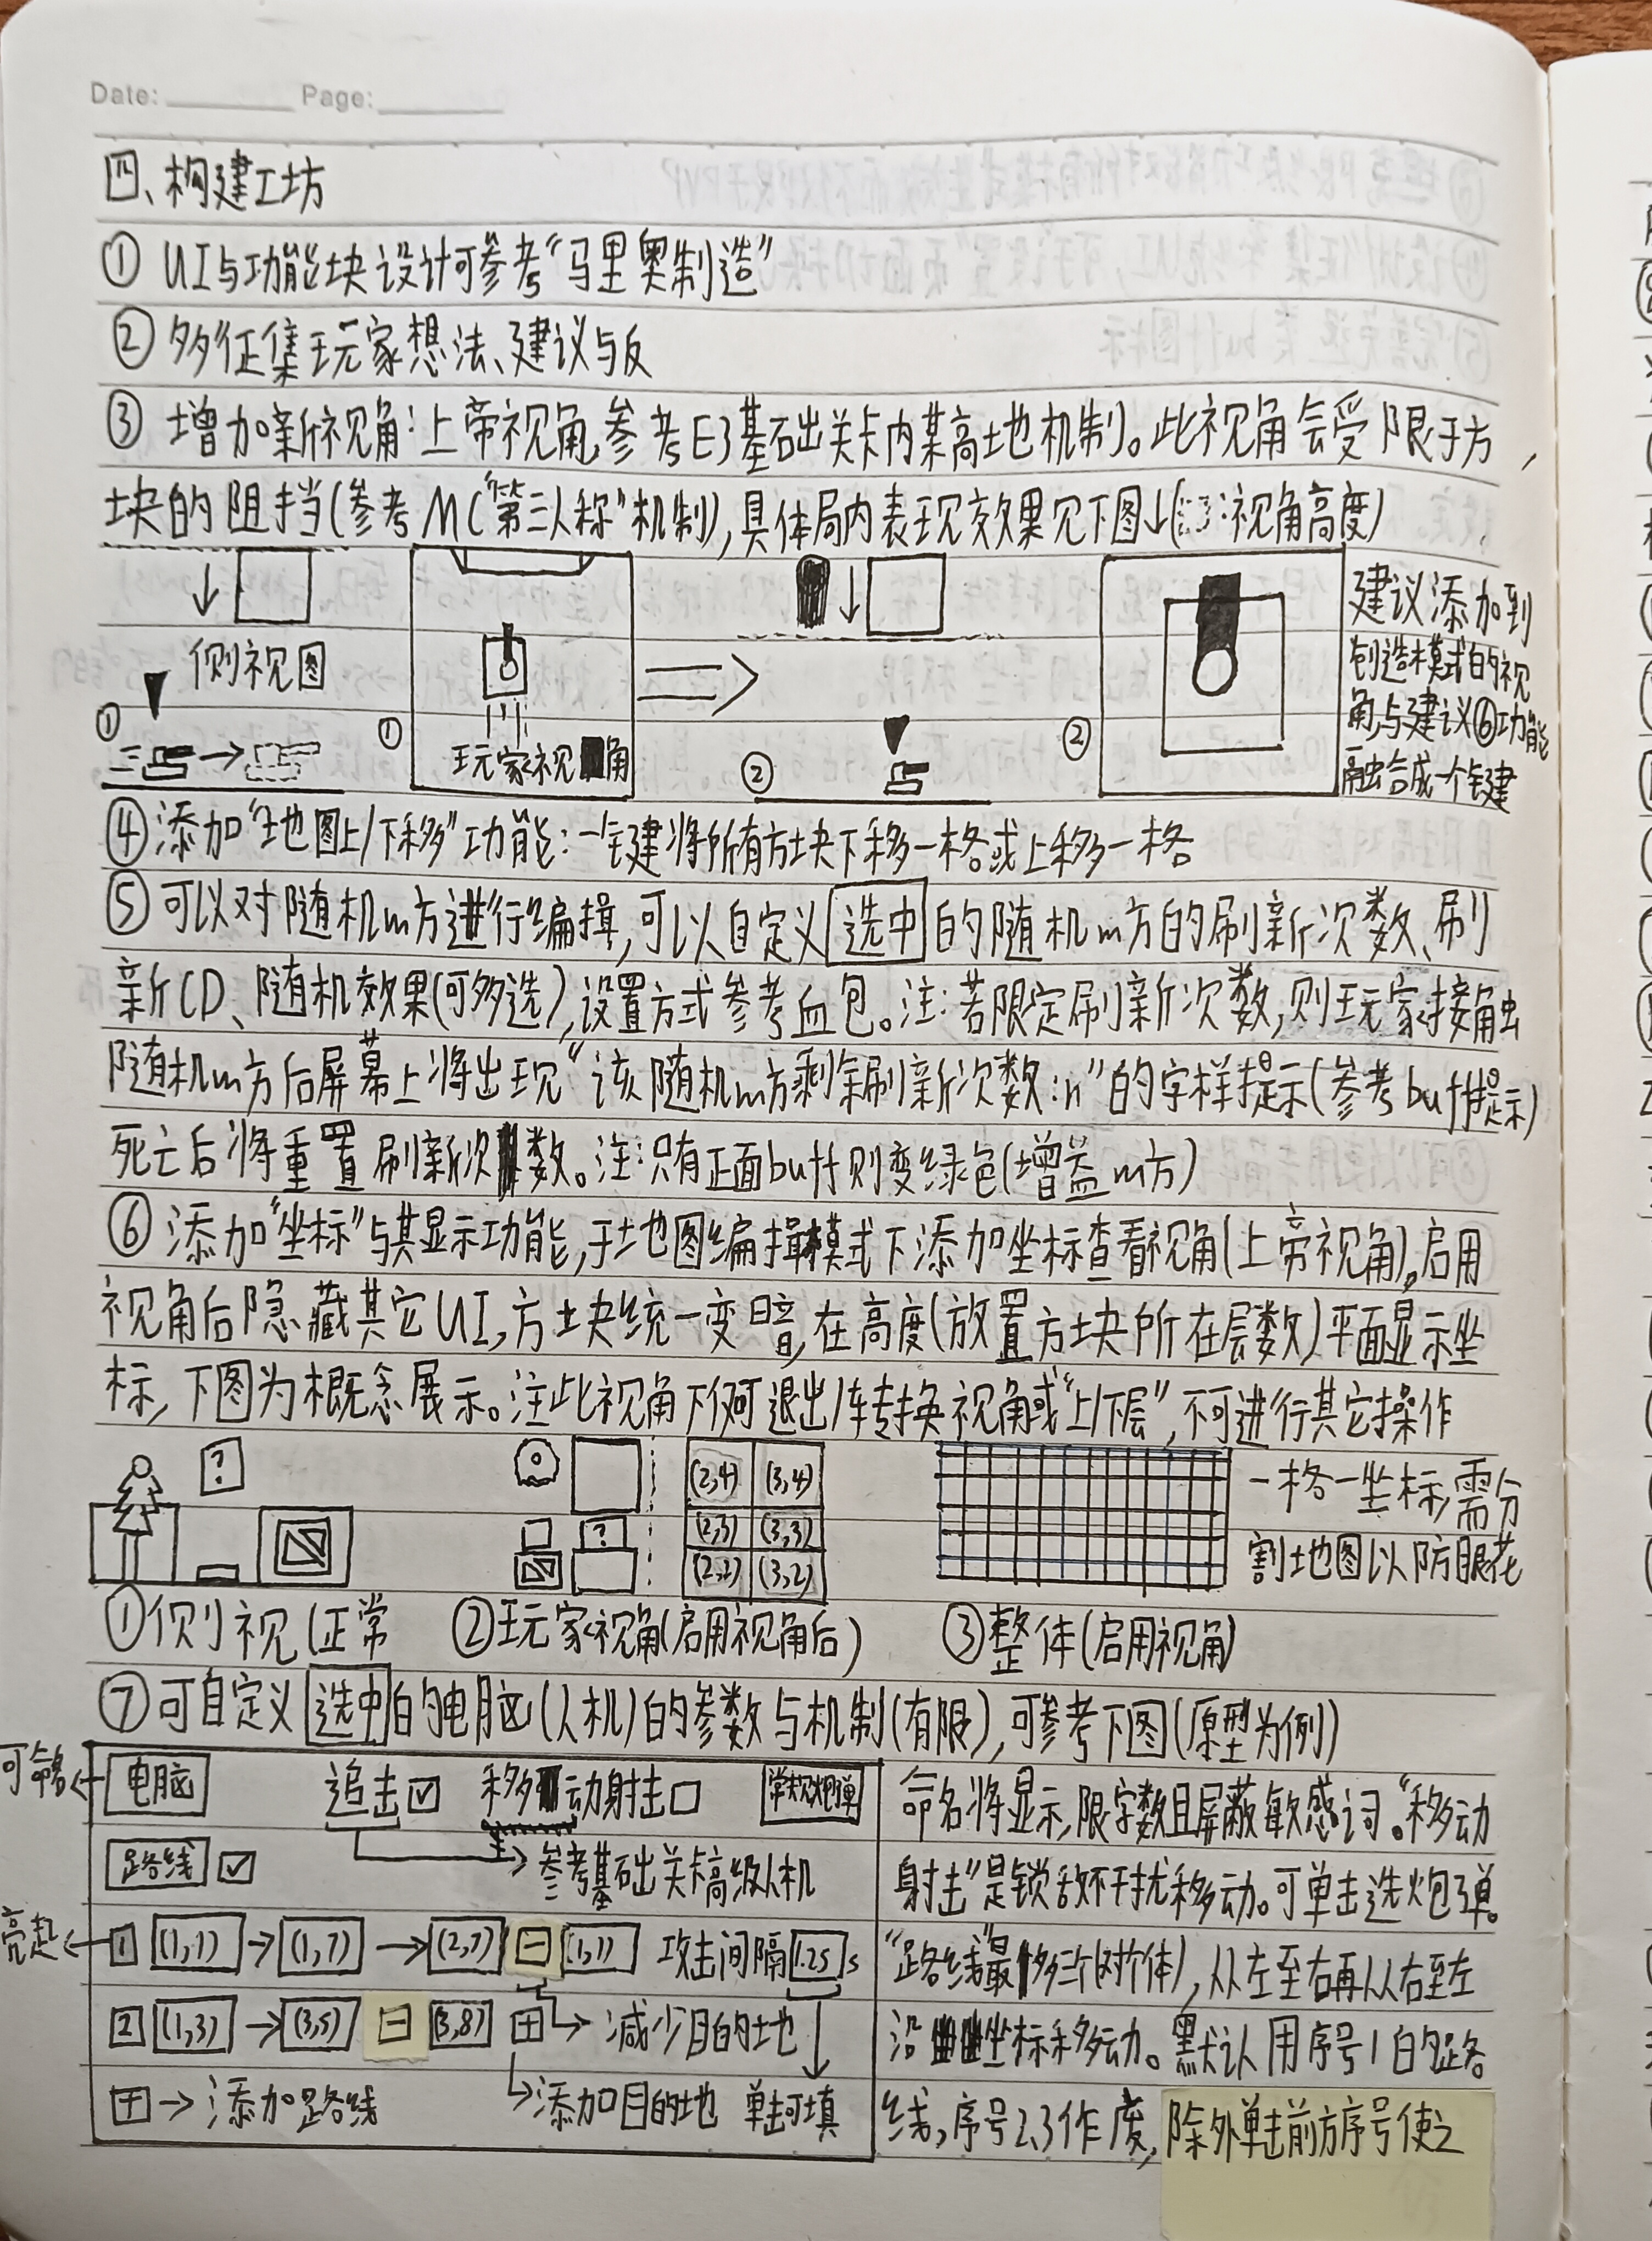 Date: Page:
四、构建工坊
① UI与功能块设计可参考“马里奥制造”
② 多征集玩家想法、建议与反
③ 增加新视角:上帝视角,参考E3基础关卡内某高地机制。此视角会受限于方
块的阻挡(参考MC“第三人称”机制),具体局内表现效果见下图↓( :视角高度)
侧视图
①
① 玩家视角
②
②
建议添加到
创造模式的视
角,与建议⑥功能
融合成一个键
④添加“地图上/下移”功能:一键将所有方块下移一格或上移一格
⑤可以对随机m方进行编辑,可以自定义选中的随机m方的刷新次数、刷
新CD、随机效果(可多选),设置方式参考血包。注:若限定刷新次数,则玩家接触
随机m方后屏幕上将出现“该随机m方剩余刷新次数:n”的字样提示(参考buff提示)
死亡后将重置刷新次数。注:只有正面buff则变绿色(增益m方)
⑥添加“坐标”与其显示功能,于地图编辑模式下添加坐标查看视角(上帝视角),启用
视角后隐藏其它UI,方块统一变暗,在高度(放置方块所在层数)平面显示坐
标,下图为概念展示。注此视角下仅可退出/转换视角或“上/下层”,不可进行其它操作
?
?
(2,4) (3,4)
(2,3) (3,3)
(2,2) (3,2)
一格一坐标,需分
割地图以防眼花
①侧视(正常 ②玩家视角(启用视角后) ③整体(启用视角)
⑦可自定义选中的电脑(人机)的参数与机制(有限),可参考下图(原型为例)
可命名← 电脑 追击☑ 移动射击□ 常规炮弹
路线 ☑ →参考基础关卡高级人机
亮起← 1 (1,1) → (1,7) → (2,7) − (1,1) 攻击间隔1.25s
2 (1,3) → (3,5) − (3,8) + → 减少目的地
+ → 添加路线 →添加目的地 单击可填
命名将显示,限字数且屏蔽敏感词。“移动
射击”是锁敌不干扰移动。可单击选炮弹。
“路线”最多三个(对个体),从左至右再从右至左
沿坐标移动。默认用序号1的路
线,序号2、3作废,除外单击前方序号使之